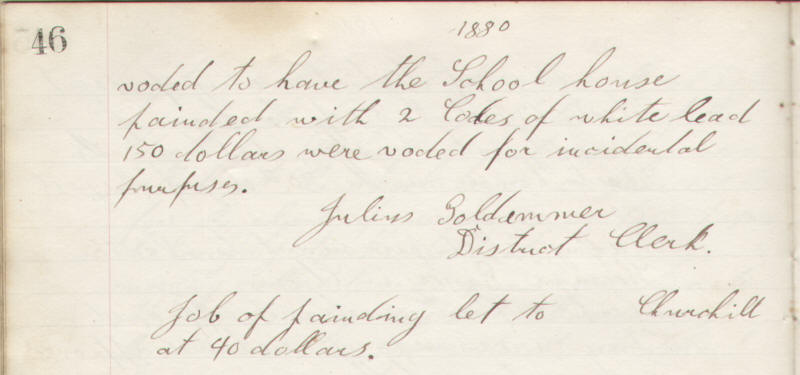 46
1880
voded to have the School house
painded with 2 Codes of white lead
150 dollars were voded for incidental
purpses.
Julius Goldammer
District Clerk.
Job of painding let to Churchill
at 40 dollars.